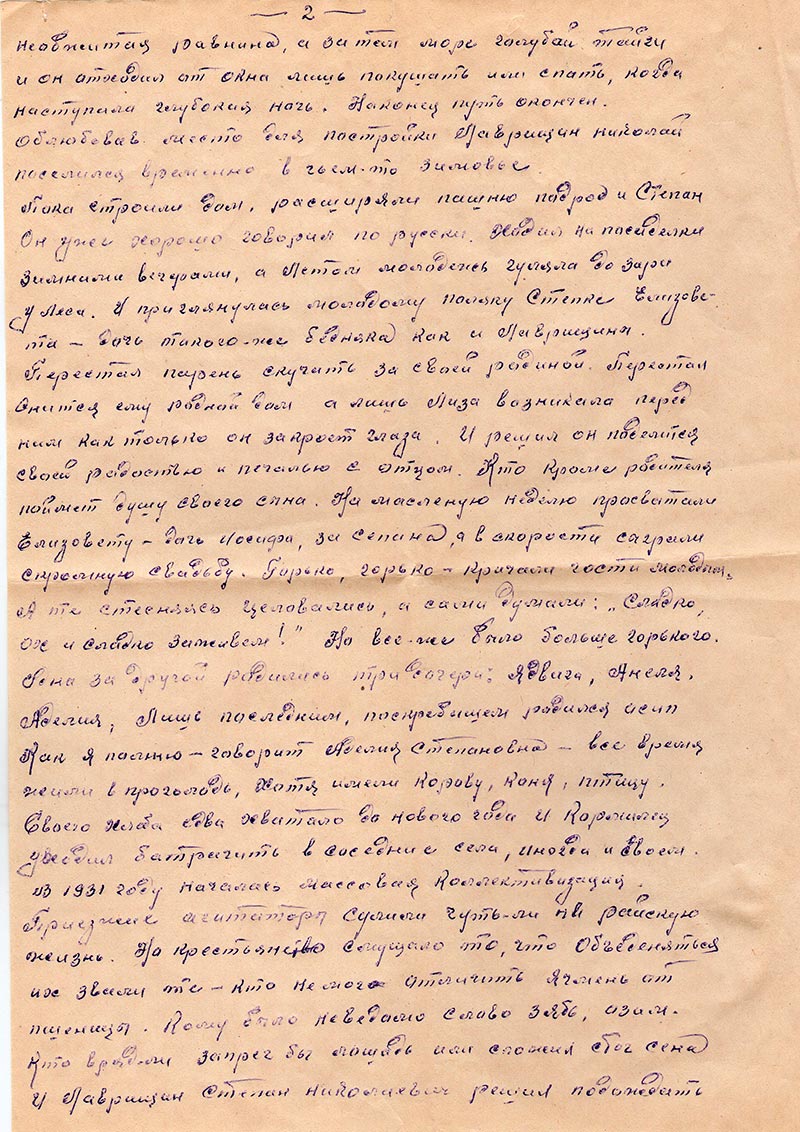 — 2 —
необжитая равнина, а затем море голубой тайги
и он отходил от окна лишь покушать или спать, когда
наступала глубокая ночь. Наконец путь окончен.
Облюбовав место для постройки Лаврищан Николай
поселился временно в чьем-то зимовье.
Пока строили дом, расширяли пашню подрос и Степан
Он уже хорошо говорил по русски. Ходил на посиделки
зимними вечерами, а Летом молодежь гуляла до зари
у леса. И приглянулась молодому поляку Степке Елизове-
та — дочь такого-же бедняка как и Лаврищаны.
Перестал парень скучать за своей родиной. Перестал
снится ему родной дом а лишь Лиза возникала перед
ним как только он закроет глаза. И решил он поделится
своей радостью и печалью с отцом. Кто кроме родителя
поймет душу своего сына. На масленую неделю просватали
Елизовету — дочь Иосифа, за Сепана, а в скорости сыграли
скромную свадьбу. Горько, горько — кричали гости молодым.
А те стесняясь целовались, а сами думали: „Сладко,
ох и сладко заживем!" Но все-же было больше горького.
Одна за другой родились три дочери: Ядвига, Анеля,
Аделия, Лишь последним, поскребищем родился Осип
Как я помню — говорит Аделия Степановна — все время
жили в проголодь, Хотя имели корову, коня, птицу.
Своего хлеба едва хватало до нового года и Кормилец
уходил батрачить в соседние села, иногда и в своем.
В 1931 году началась массовая Коллективизация.
Приезжие агитаторы сулили чуть-ли не райскую
жизнь. Но крестьянство смущало то, что Объеденяться
их звали те — кто не мог отличить ячмень от
пшеницы. Кому было неведомо слово зябь, озим.
Кто врядли запрег бы лошадь или сложил стог сена
И Лаврищан Степан Николаевич решил подождать